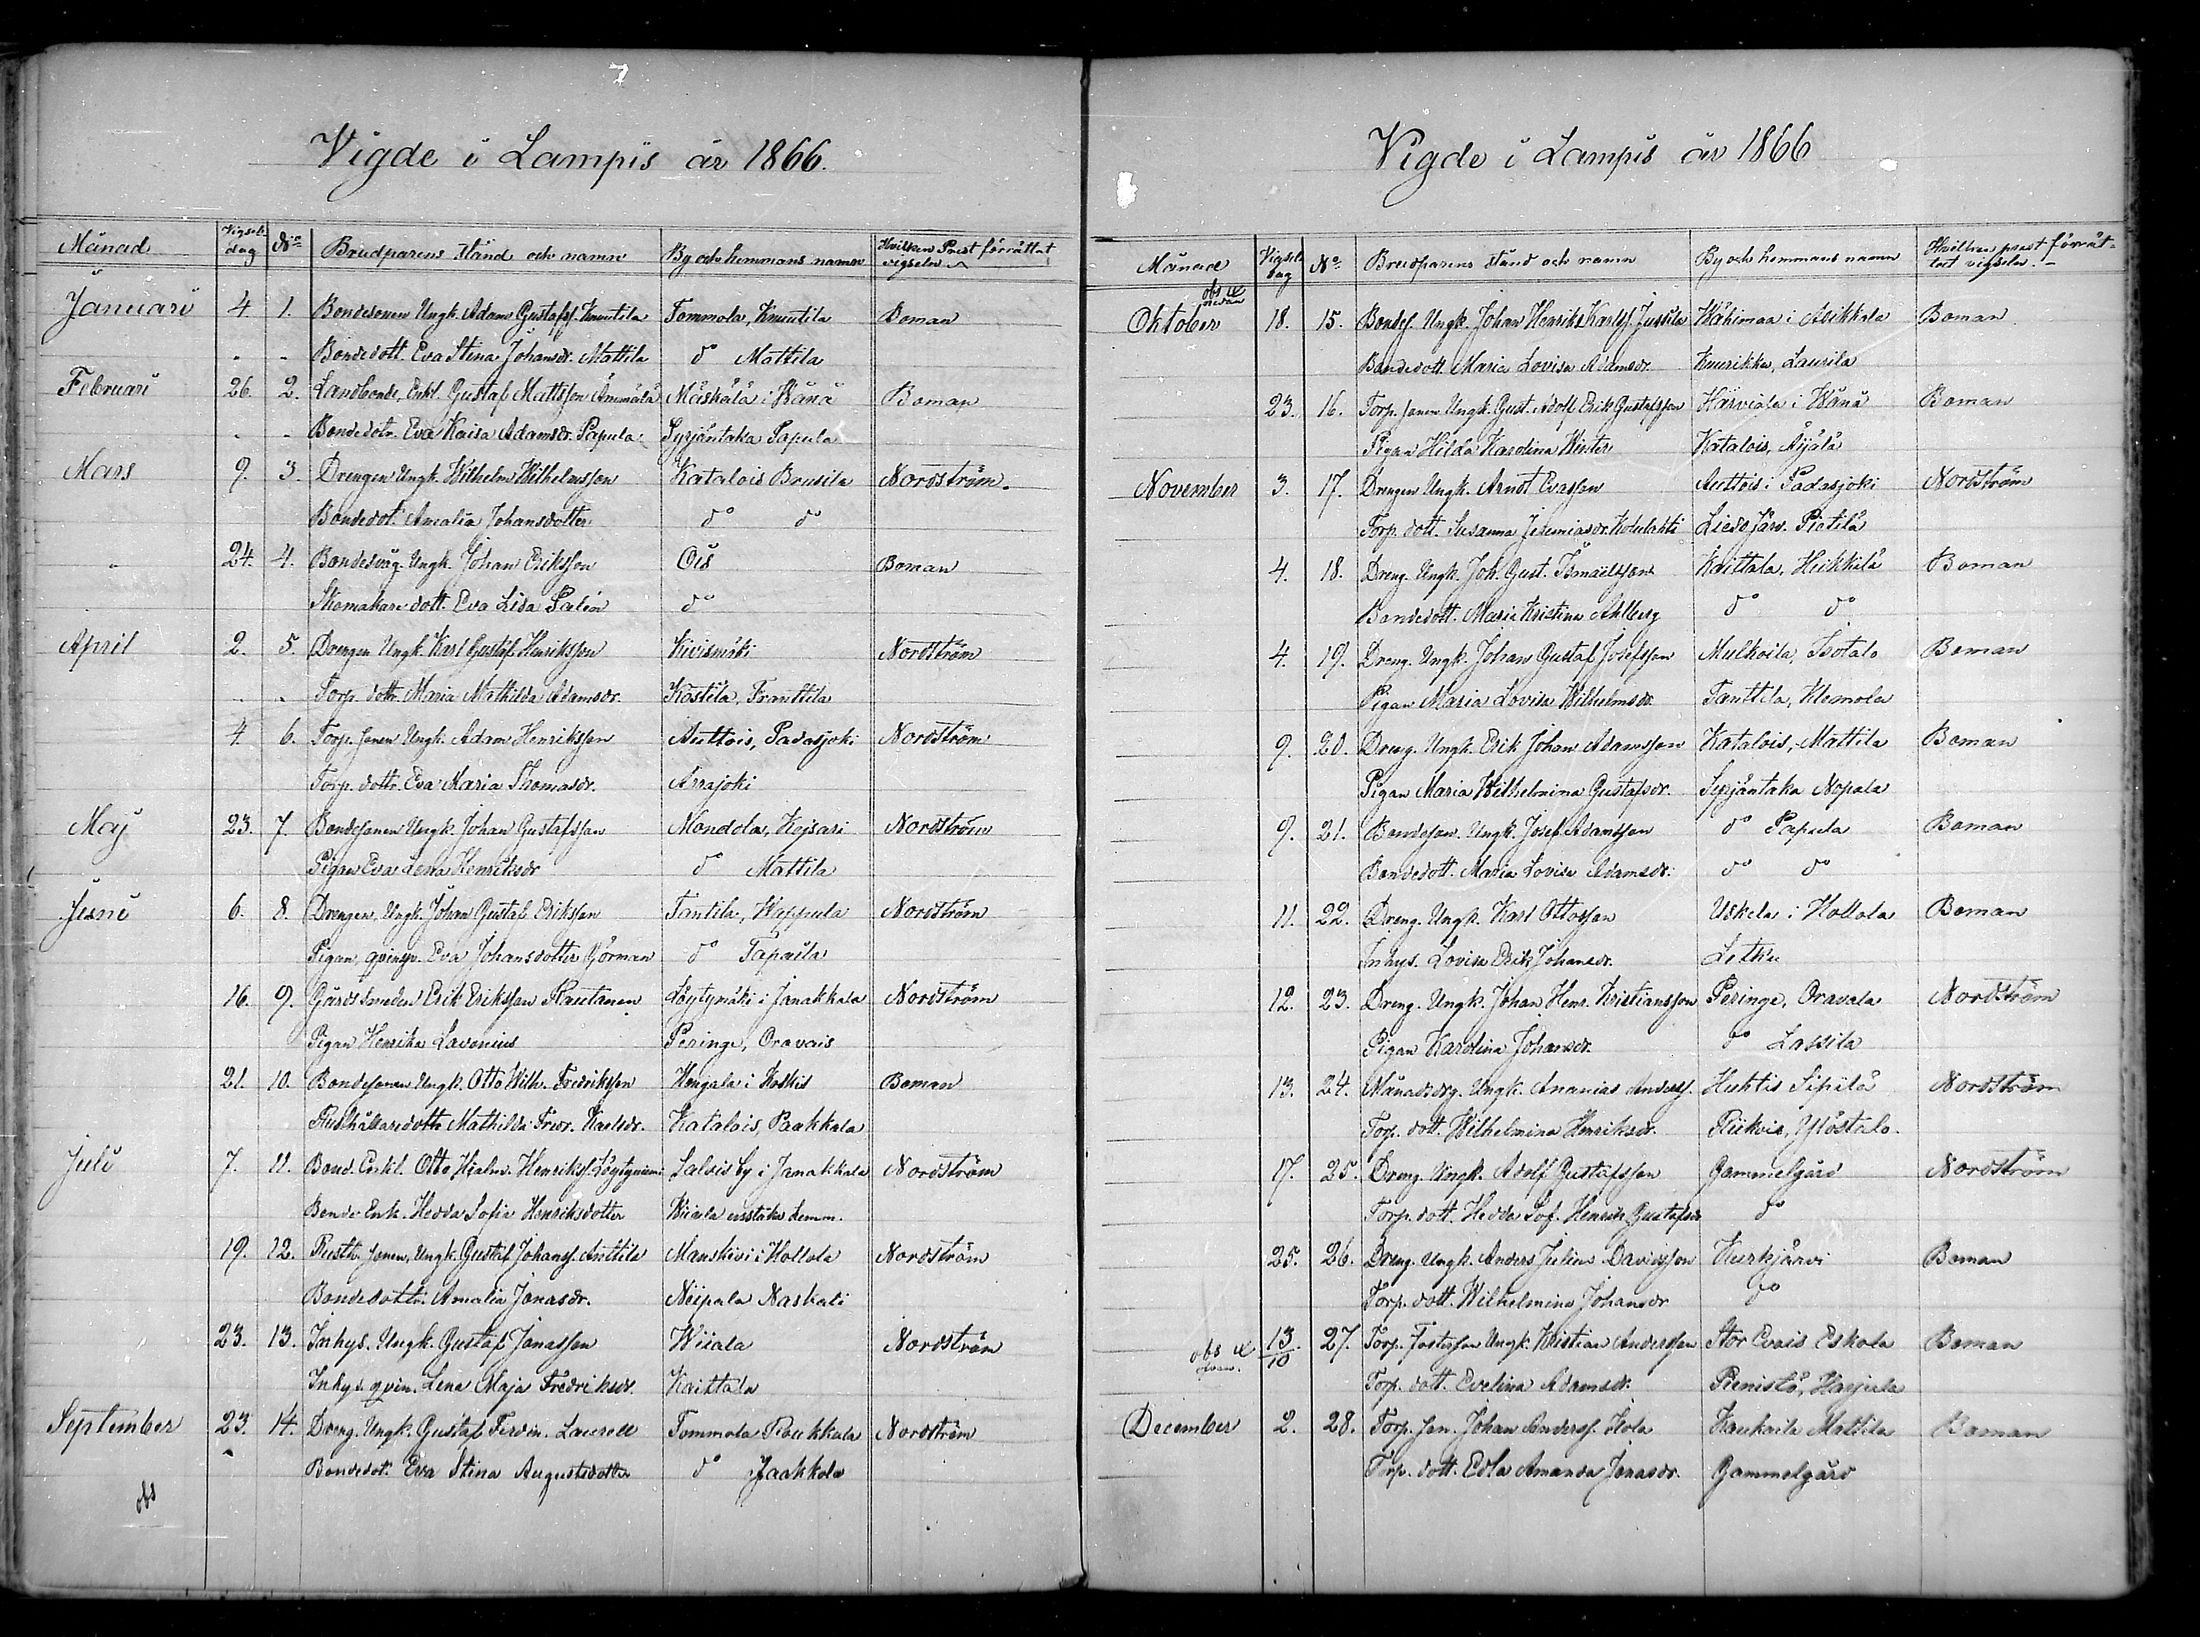 Vigde i Lampis år 1866.
Månad Vigsel dag No Brudparens stånd och namn By och hemmans namn Hvilken Prest förrättat vigseln
Januari 4 1. Bondesonen Ungk. Adam Gustafss. Knuutila Tommola, Knuutila Boman
" " Bondedott. Eva Stina Johansdr. Mattila do Mattila
Februari 26. 2. Landbonde, Enkl. Gustaf Mattsson Ämmälä Mäskälä i Wånå Boman
" " Bondedotr. Eva Kaisa Adamsdr. Papula Syrjäntaka Papula
Mars 9. 3. Drengen Ungk. Wilhelm Wilhelmsson Katalois Brusila Nordström.
Bondedot. Amalia Johansdotter do do
" 24. 4. Bondesvåg. Ungk. Johan Eriksson Ois Boman
Skomakare dott. Eva Lisa Palén do
April 2. 5. Drengen Ungk. Karl Gustaf Henriksson Kivismäki Nordström
" " Torp. dottr. Maria Mathilda Adamsdr. Kostila, Franttila
4. 6. Torp. sonen Ungk. Adam Henriksson Auttois, Padasjoki Nordström
Torp. dottr. Eva Maria Thomasdr. Arrajoki
Maj 23. 7. Bondesonen Ungk. Johan Gustafsson Mondola, Kejsari Nordström
Pigan Eva Lena Henriksdr do Mattila
Juni 6. 8. Drengen, Ungk. Johan Gustaf Eriksson Tantila, Wappula Nordström
Pigan, qvinsp. Eva Johansdotter Görman do Tapaila
16. 9. Gårds smeden Erik Eriksson Rautanen Löytymäki i Janakkala Nordström
Pigan Henrika Lavonius Peringe, Oravais
21. 10. Bondesonen Ungk. Otto Wilh. Fredriksson Hongala i Koskis Boman
Rusthållaredottr Mathilda Fredr. Karlsdr. Katalois, Paakkala
Juli 7. 11. Bond. Enkl. Otto Hialm. Henrikss. Löytyniemi Salois by i Janakkala Nordström
Bonde Enk. Hedda Sofia Henriksdotter Wiiala enstaka hemm.
19. 12. Rusth. sonen, Ungk. Gustaf Johanss. Anttila Manskivi i Hollola Nordström
Bondedottr. Amalia Jonasdr. Niipala Naskali
23. 13. Inhys. Ungk. Gustaf Jonasson Wiiala Nordström
Inhys. qvin. Lena Maja Fredriksdr. Kaittala
September 23. 14. Dreng. Ungk. Gustaf Ferdin. Laurell Tommola Roukkala Nordström
Bondedot. Eva Stina Augustsdotter do Jaakkola
obs
Vigde i Lampis år 1866
Månad Vigsel dag No Brudparens stånd och namn By och hemmans namn Hvilken prest förrät- tat vigseln.
obs nedan
Oktober 18. 15. Bondes. Ungk. Johan Henrik Karlss. Jussila Wähimaa i Asikkala Boman
Bondedott. Maria Lovisa Adamsdr. Kuurikka, Laurila
23. 16. Torp. sonen Ungk. Gust. Adolf Erik Gustafsson Harviala i Wånå Boman
Pigan Hilda Karolina Wester Katalois, Äijälä
November 3. 17. Drengen Ungk. Arndt Evasson Auttois i Padasjoki Nordström
Torp. dott. Susanna Jeremiasdr. Kotulahti Lieso Järv. Pietilä
4. 18. Dreng. Ungk. Joh. Gust. Ismaelsson Kaittala, Heikkilä Boman
Bondedott. Maria Kristina Ahlberg do do
4. 19. Dreng. Ungk. Johan Gustaf Josefsson Mulkoila, Isotalo Boman
Pigan Maria Lovisa Wilhelmsdr. Tanttila, Klemola
9. 20. Dreng. Ungk. Erik Johan Adamsson Katalois, Mattila Boman
Pigan Maria Wilhelmina Gustafsdr. Syrjäntaka Nopala
9. 21. Bondeson. Ungk. Josef Adamsson do Papula Boman
Bondedott. Maria Lovisa Adamsdr. do do
11. 22. Dreng. Ungk. Karl Ottosson Uskela i Hollola Boman
Inhys. Lovisa Erik Johansdr. Lethu
12. 23. Dreng. Ungk. Johan Henr. Kristiansson Peringe, Oravala Nordström
Pigan Karolina Johansdr. do Lassila
13. 24. Månadsdrg. Ungk. Ananias Anderss. Huhtis Sipilä Nordström
Torp. dott. Wilhelmina Henriksdr. Riikvia, Ylöstalo.
17. 25. Dreng. Ungk. Adolf Gustafsson Gammelgård Nordström
Torp. dott. Hedda Sof. Henrik Gustafsdr do
25. 26. Dreng. Ungk. Anders Julius Davidsson Kurkjärvi Boman
Torp. dott. Wilhelmina Johansdr do
obs ofvan. 13/10 27. Torp. fosterson Ungk. Kristian Andersson Stor Evois Eskola Boman
Torp. dott. Evelina Adamsdr. Pienistö, Harjula
December 2. 28. Torp. son. Johan Anderss. Hola Kaukaila Mattila Boman
Torp. dott. Edla Amanda Jonasdr. Gammelgård